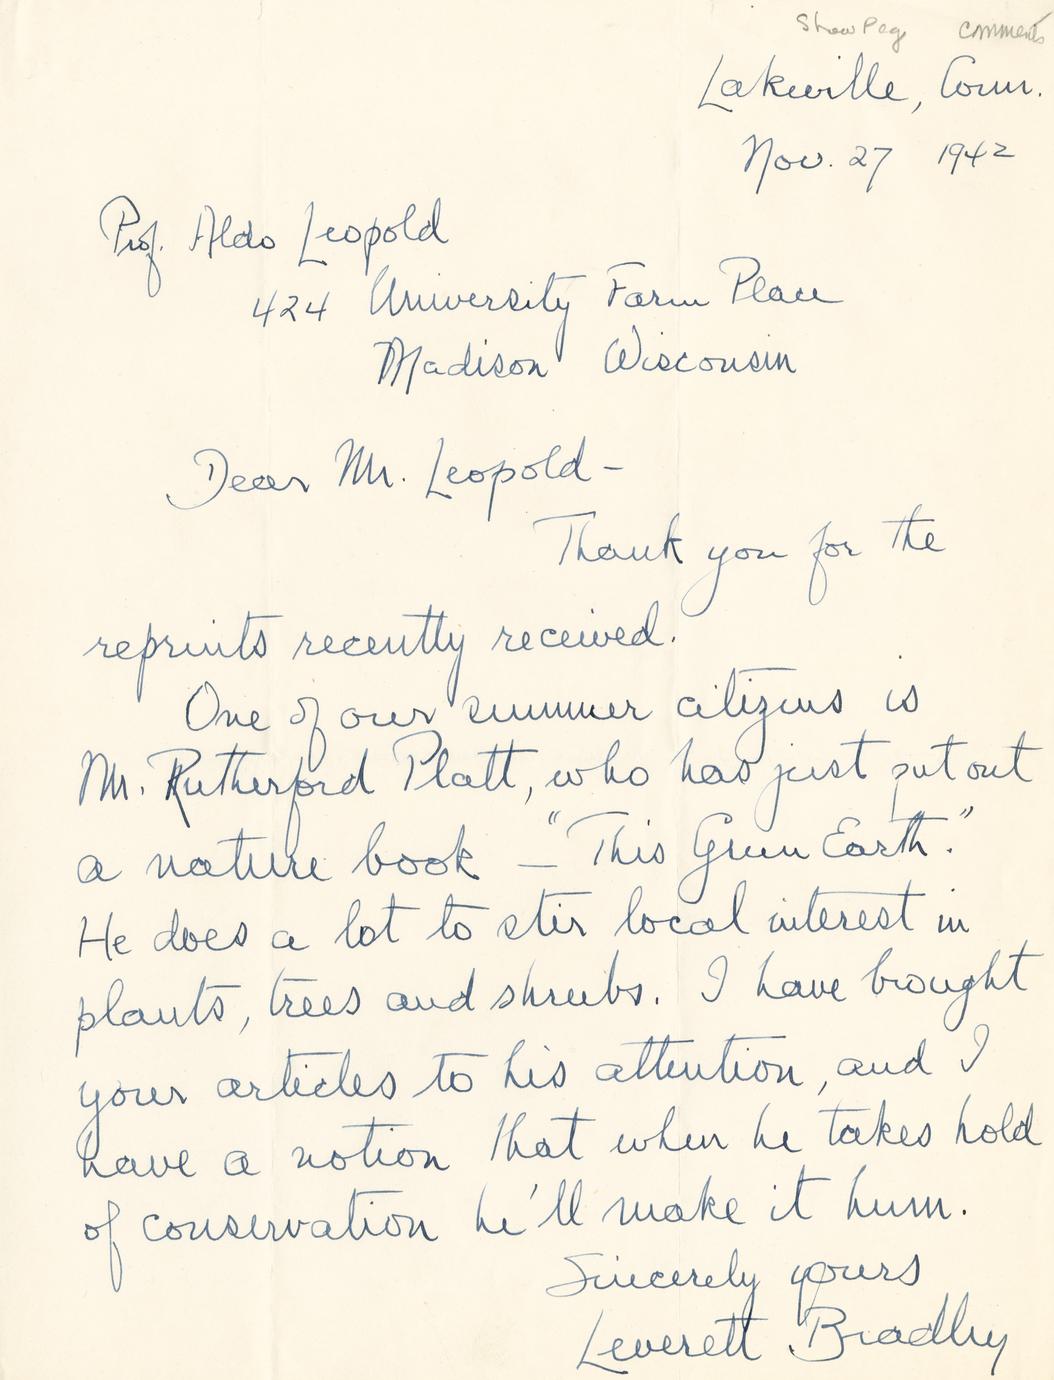 Show Pag comments
Lakeville, Conn.
Nov. 27 1942
Prof. Aldo Leopold
424 University Farm Place
Madison Wisconsin
Dear Mr. Leopold-
Thank you for the
reprints recently received.
One of our summer citizens is
Mr. Rutherford Platt, who has just put out
a nature book — "This Green Earth."
He does a lot to stir local interest in
plants, trees and shrubs. I have brought
your articles to his attention, and I
have a notion that when he takes hold
of conservation he'll make it hum.
Sincerely yours
Leverett Bradley